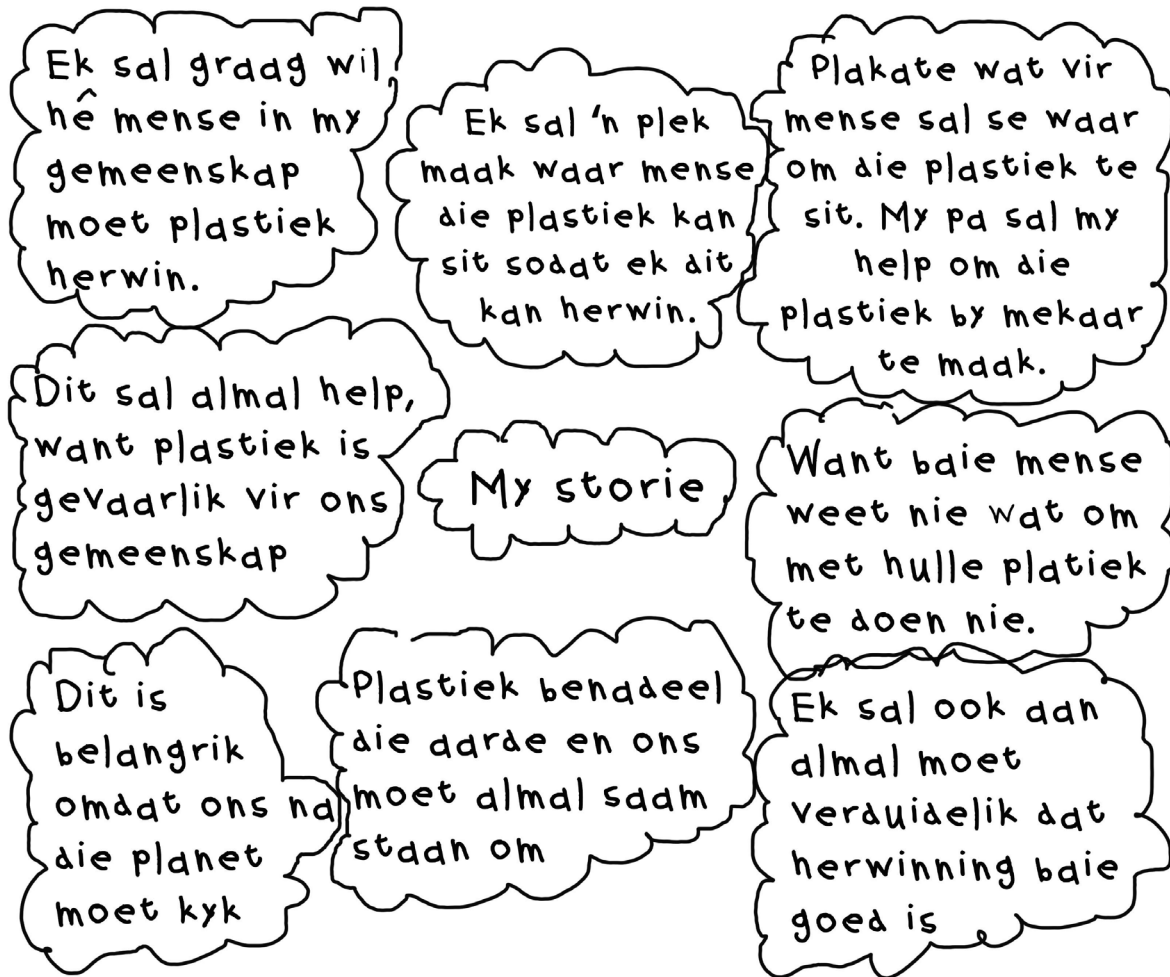 Ek sal graag wil
hê mense in my
gemeenskap
moet plastiek
herwin.
Ek sal 'n plek
maak waar mense
die plastiek kan
sit sodat ek dit
kan herwin.
Plakate wat vir
mense sal se waar
om die plastiek te
sit. My pa sal my
help om die
plastiek by mekaar
te maak.
Dit sal almal help,
want plastiek is
gevaarlik vir ons
gemeenskap
My storie
Want baie mense
weet nie wat om
met hulle platiek
te doen nie.
Dit is
belangrik
omdat ons na
die planet
moet kyk
Plastiek benadeel
die aarde en ons
moet almal saam
staan om
Ek sal ook aan
almal moet
verduidelik dat
herwinning baie
goed is